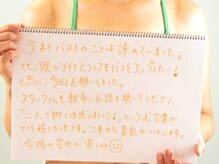 今までバストのことは諦めていました。
でも、彼ができてどうしてもバストアップしたい!
と思い、今回お願いしました。
スタッフさんも親身にお話を聴いてくださり、
「二人三脚で頑張りましょう」というお言葉が
とても嬉しかったです。これから育乳がんばります。
今後の変化が楽しみ